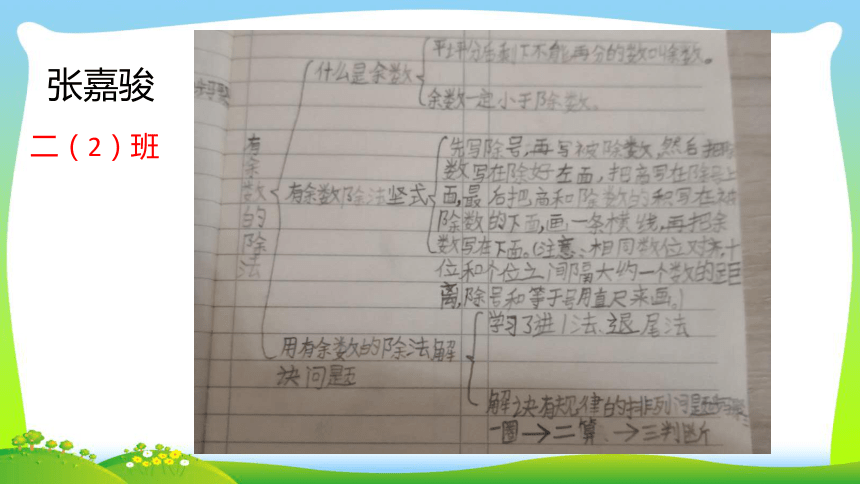 张嘉骏
二（2）班
有余数的除法
什么是余数
平均分后剩下不能再分的数叫余数。
余数一定小于除数。
有余数除法竖式
先写除号,再写被除数,然后把除
数写在除好左面,把商写在除号上
面,最后把商和除数的积写在被
除数的下面,画一条横线,再把余
数写在下面。(注意:相同数位对齐,十
位和个位之间隔大约一个数的距
离,除号和等于号用直尺来画。)
用有余数的除法解
决问题
学习了进1法、退尾法
解决有规律的排列问题
一圈→二算→三判断